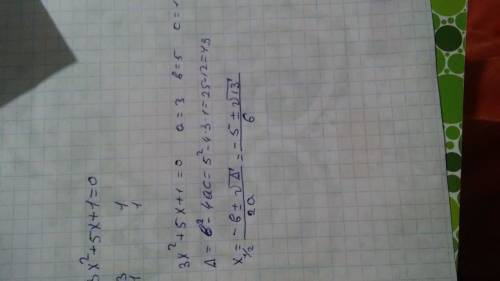 3x²+5x+1=0
3 1
1 1
3x²+5x+1=0 a=3 b=5 c=1
Δ=b²-4ac=5²-4·3·1=25-12=43
x½=-b±√Δ/2a=-5±√13/6